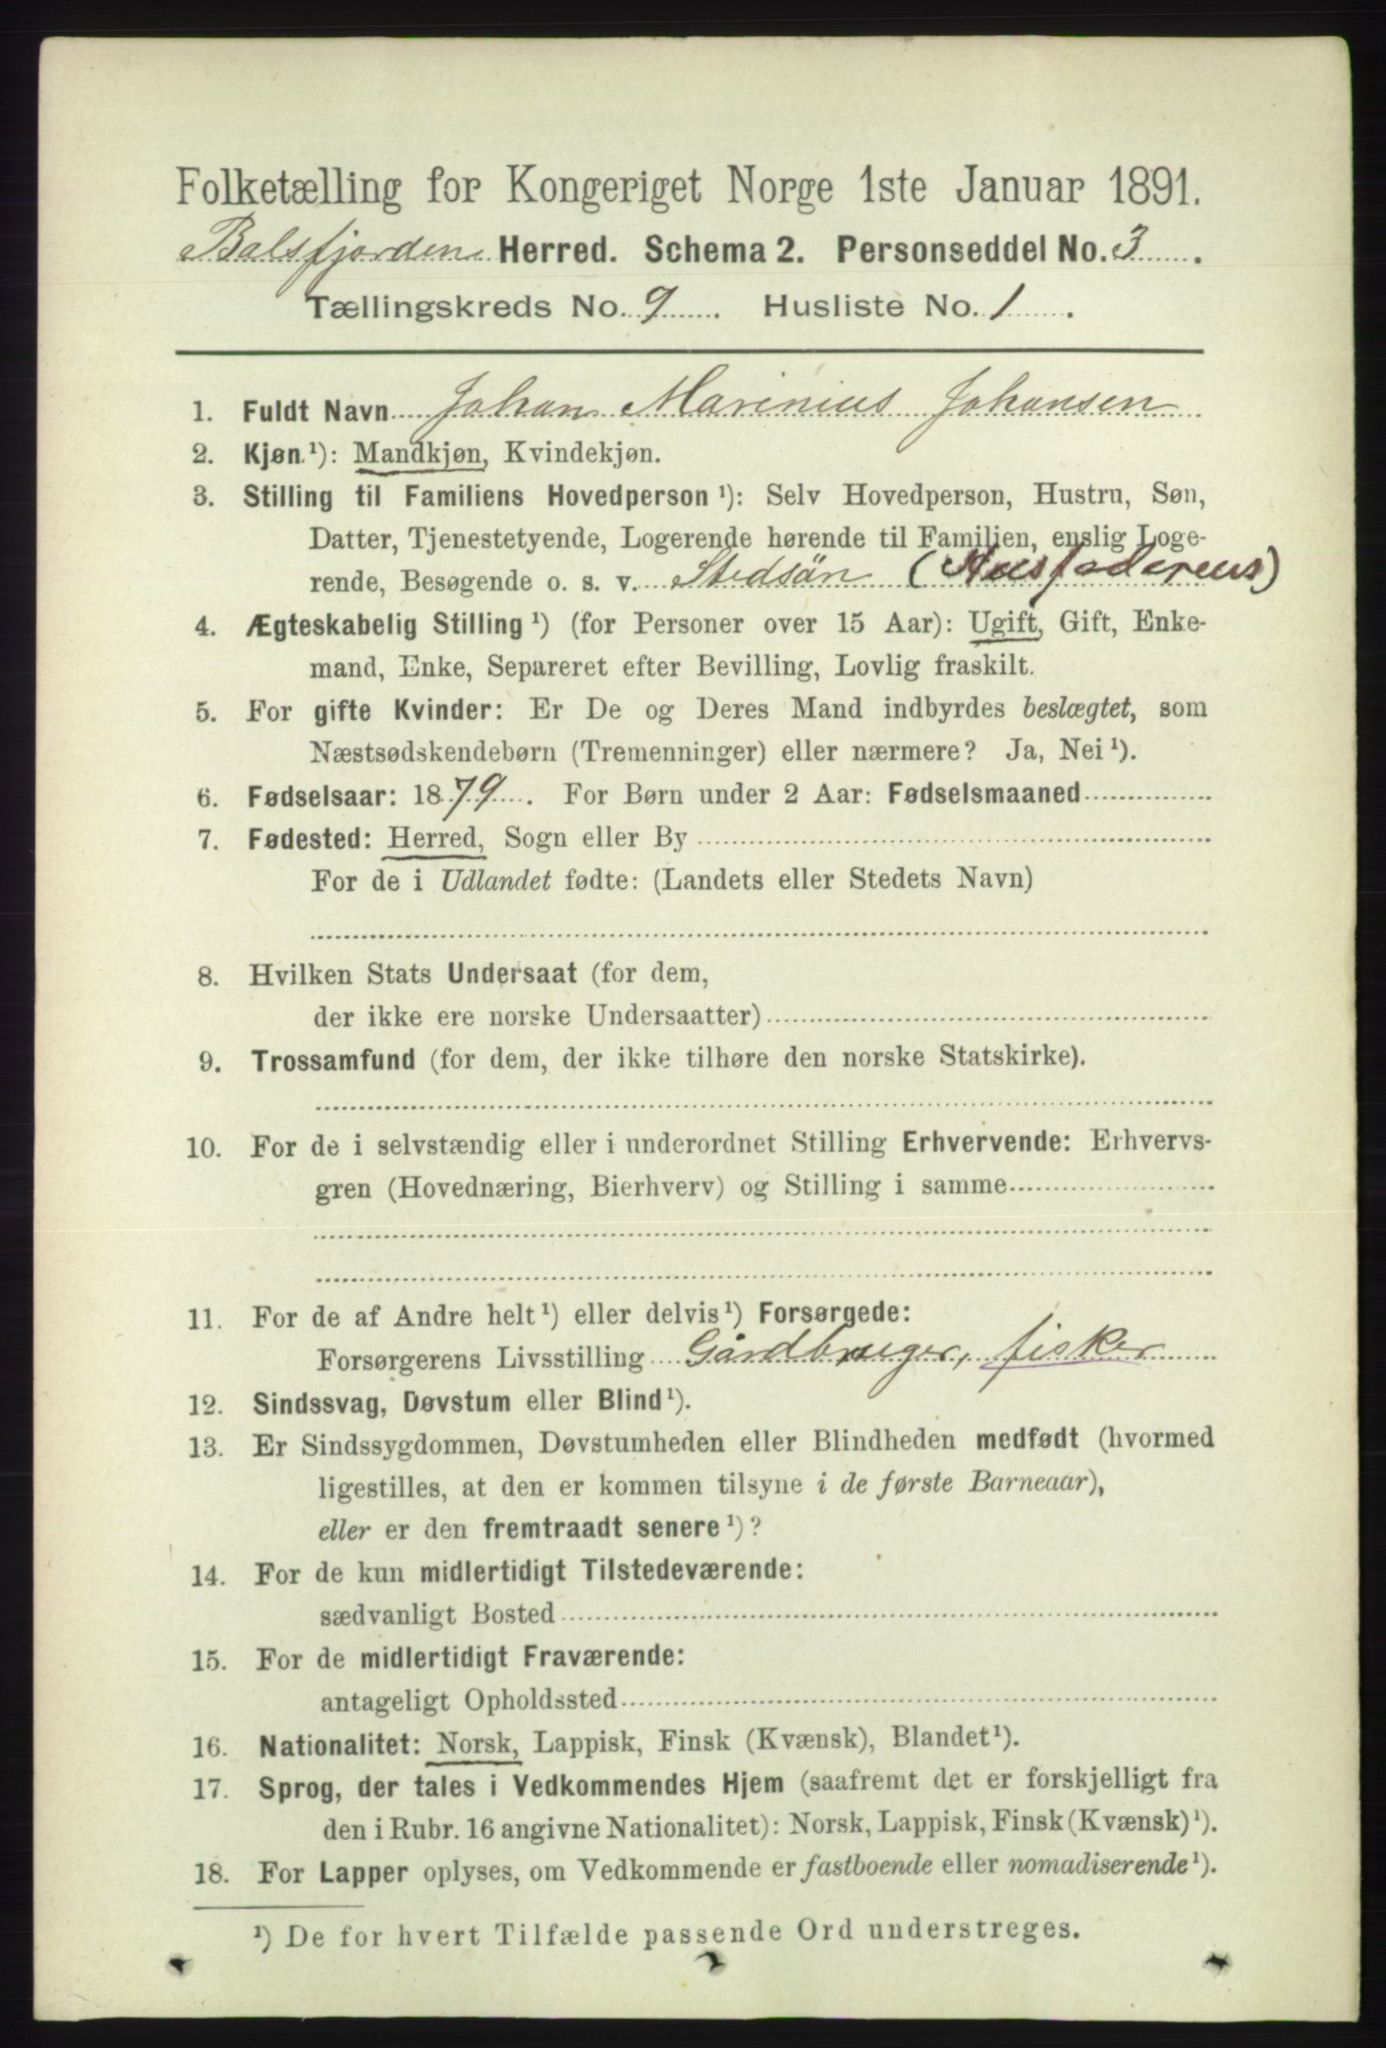 Folketælling for Kongeriget Norge 1ste Januar 1891.
Balsfjorden Herred. Schema 2. Personseddel No. 3.
Tællingskreds No. 9. Husliste No. 1.
1. Fuldt Navn Johan Marinius Johansen
2. Kjøn ¹): Mandkjøn, Kvindekjøn.
3. Stilling til Familiens Hovedperson ¹): Selv Hovedperson, Hustru, Søn,
Datter, Tjenestetyende, Logerende hørende til Familien, enslig Loge-
rende, Besøgende o. s. v. Stedsön (Husfaderens)
4. Ægteskabelig Stilling ¹) (for Personer over 15 Aar): Ugift, Gift, Enke-
mand, Enke, Separeret efter Bevilling, Lovlig fraskilt.
5. For gifte Kvinder: Er De og Deres Mand indbyrdes beslægtet, som
Næstsødskendebørn (Tremenninger) eller nærmere? Ja, Nei ¹).
6. Fødselsaar: 1879. For Børn under 2 Aar: Fødselsmaaned
7. Fødested: Herred, Sogn eller By
For de i Udlandet fødte: (Landets eller Stedets Navn)
8. Hvilken Stats Undersaat (for dem,
der ikke ere norske Undersaatter)
9. Trossamfund (for dem, der ikke tilhøre den norske Statskirke).
10. For de i selvstændig eller i underordnet Stilling Erhvervende: Erhvervs-
gren (Hovednæring, Bierhverv) og Stilling i samme
11. For de af Andre helt ¹) eller delvis ¹) Forsørgede:
Forsørgerens Livsstilling Gårdbruger, fisker
12. Sindssvag, Døvstum eller Blind ¹).
13. Er Sindssygdommen, Døvstumheden eller Blindheden medfødt (hvormed
ligestilles, at den er kommen tilsyne i de første Barneaar),
eller er den fremtraadt senere ¹)?
14. For de kun midlertidigt Tilstedeværende:
sædvanligt Bosted
15. For de midlertidigt Fraværende:
antageligt Opholdssted
16. Nationalitet: Norsk, Lappisk, Finsk (Kvænsk), Blandet ¹).
17. Sprog, der tales i Vedkommendes Hjem (saafremt det er forskjelligt fra
den i Rubr. 16 angivne Nationalitet): Norsk, Lappisk, Finsk (Kvænsk) ¹).
18. For Lapper oplyses, om Vedkommende er fastboende eller nomadiserende ¹).
¹) De for hvert Tilfælde passende Ord understreges.